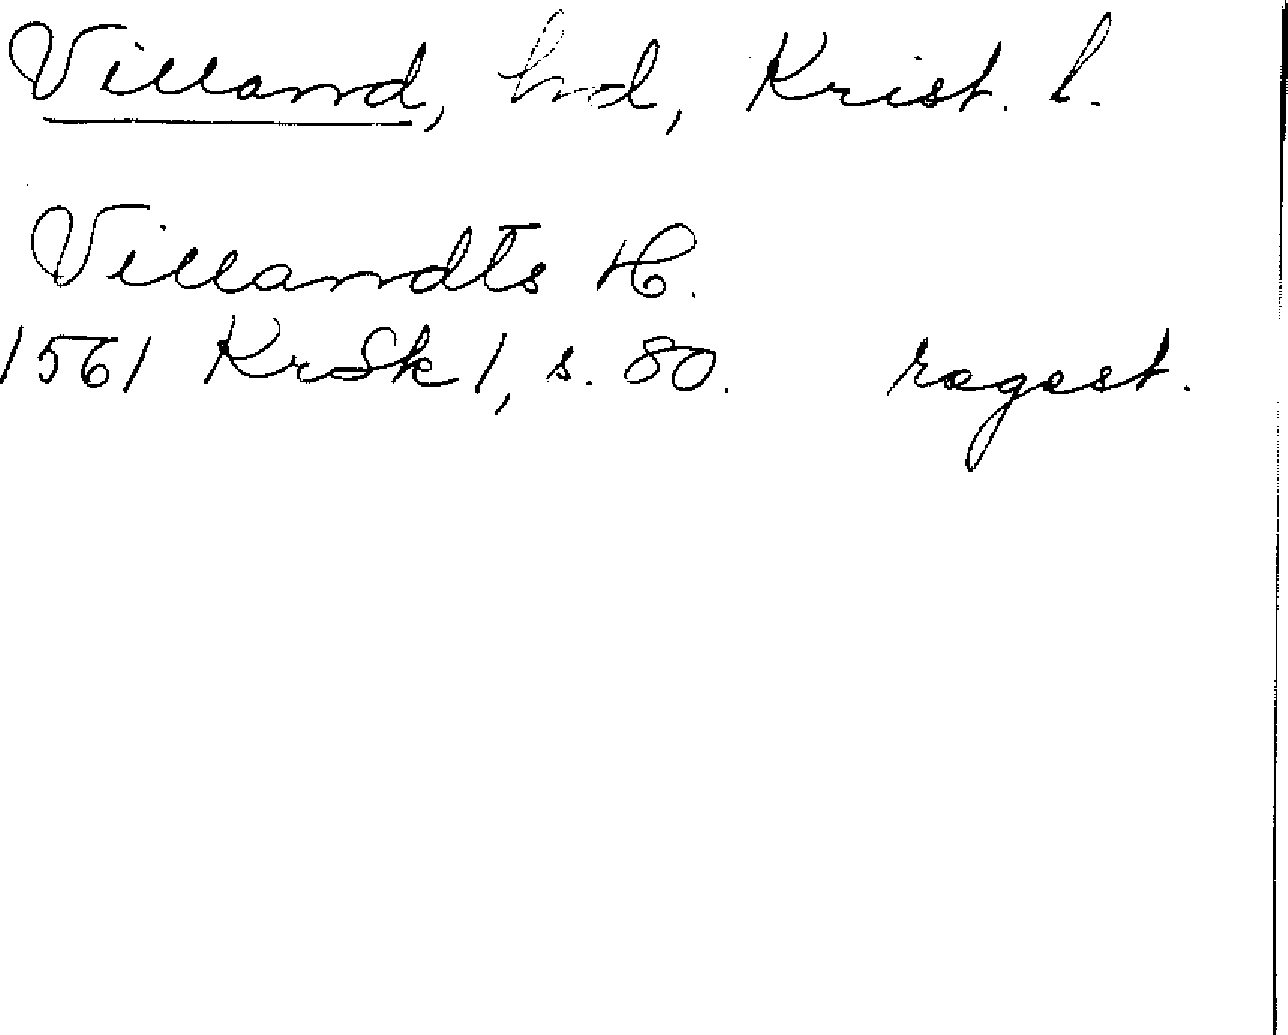 Villand, hd, Krist. l.
Villandts H.
1561 KrSk 1, s. 80. regest.